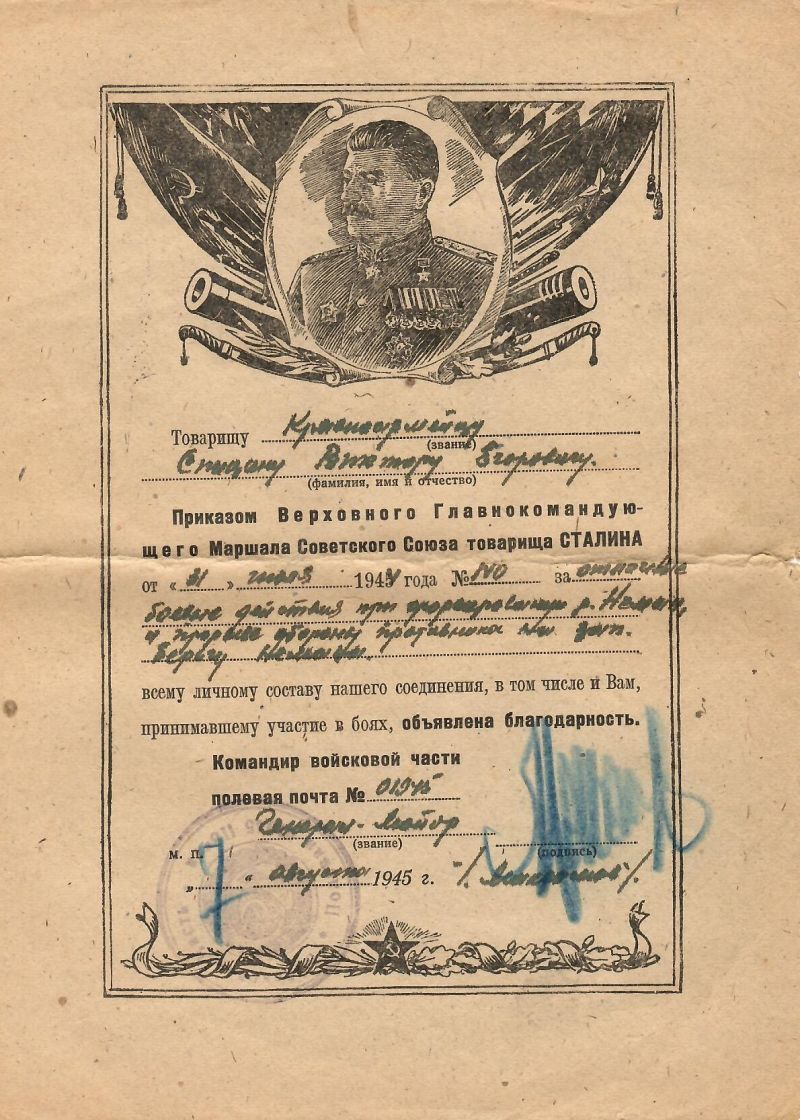 Товарищу Красноармейцу
(звание)
Спицину Виктору Егоровичу.
(фамилия, имя и отчество)
Приказом Верховного Главнокомандую-
щего Маршала Советского Союза товарища СТАЛИНА
от „31" июля 1944 года № 140 за отличные
боевые действия при форсировании р. Неман,
и прорыве обороны противника на зап.
берегу Немана.
всему личному составу нашего соединения, в том числе и Вам,
принимавшему участие в боях, объявлена благодарность.
Командир войсковой части
полевая почта № 01945
Генерал-майор
(звание) (подпись)
М. П.
„7" августа 1945 г.